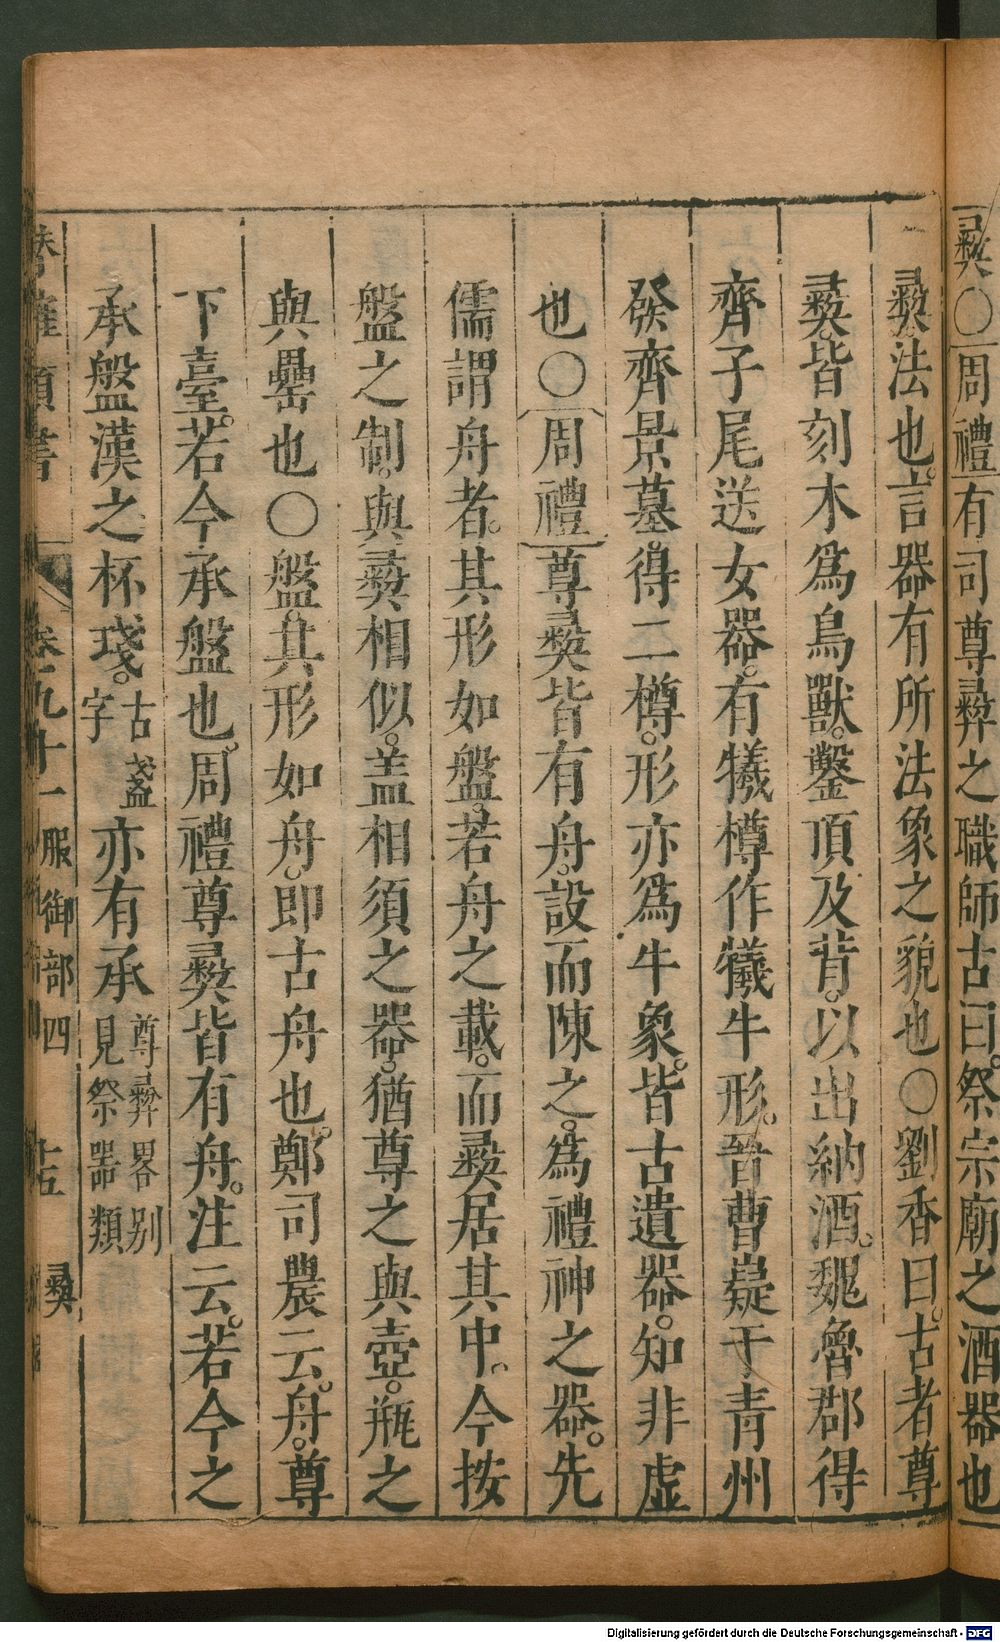 彛○周禮有司尊彛之職師古曰祭宗廟之酒器也
彛法也言器有所法象之貌也○劉香曰古者尊
彛皆刻木為鳥獸鑿頂及背以出納酒魏魯郡得
齊子尾送女器有犧樽作犧牛形晉曹嶷于青州
發齊景墓得二樽形亦為牛象皆古遺器知非虛
也○周禮尊彛皆有舟設而陳之為禮神之器先
儒謂舟者其形如盤若舟之載而彛居其中今按
盤之制與彛相似盖相須之器猶尊之與壺瓶之
與罍也○盤其形如舟即古舟也鄭司農云舟尊
下臺若今承盤也周禮尊彛皆有舟注云若今之
承盤漢之杯琖古盞字亦有承尊彛畧别見祭器類
卷九十一 服御部四 十五 彛
Digitalisierung gefördert durch die Deutsche Forschungsgemeinschaft - DFG